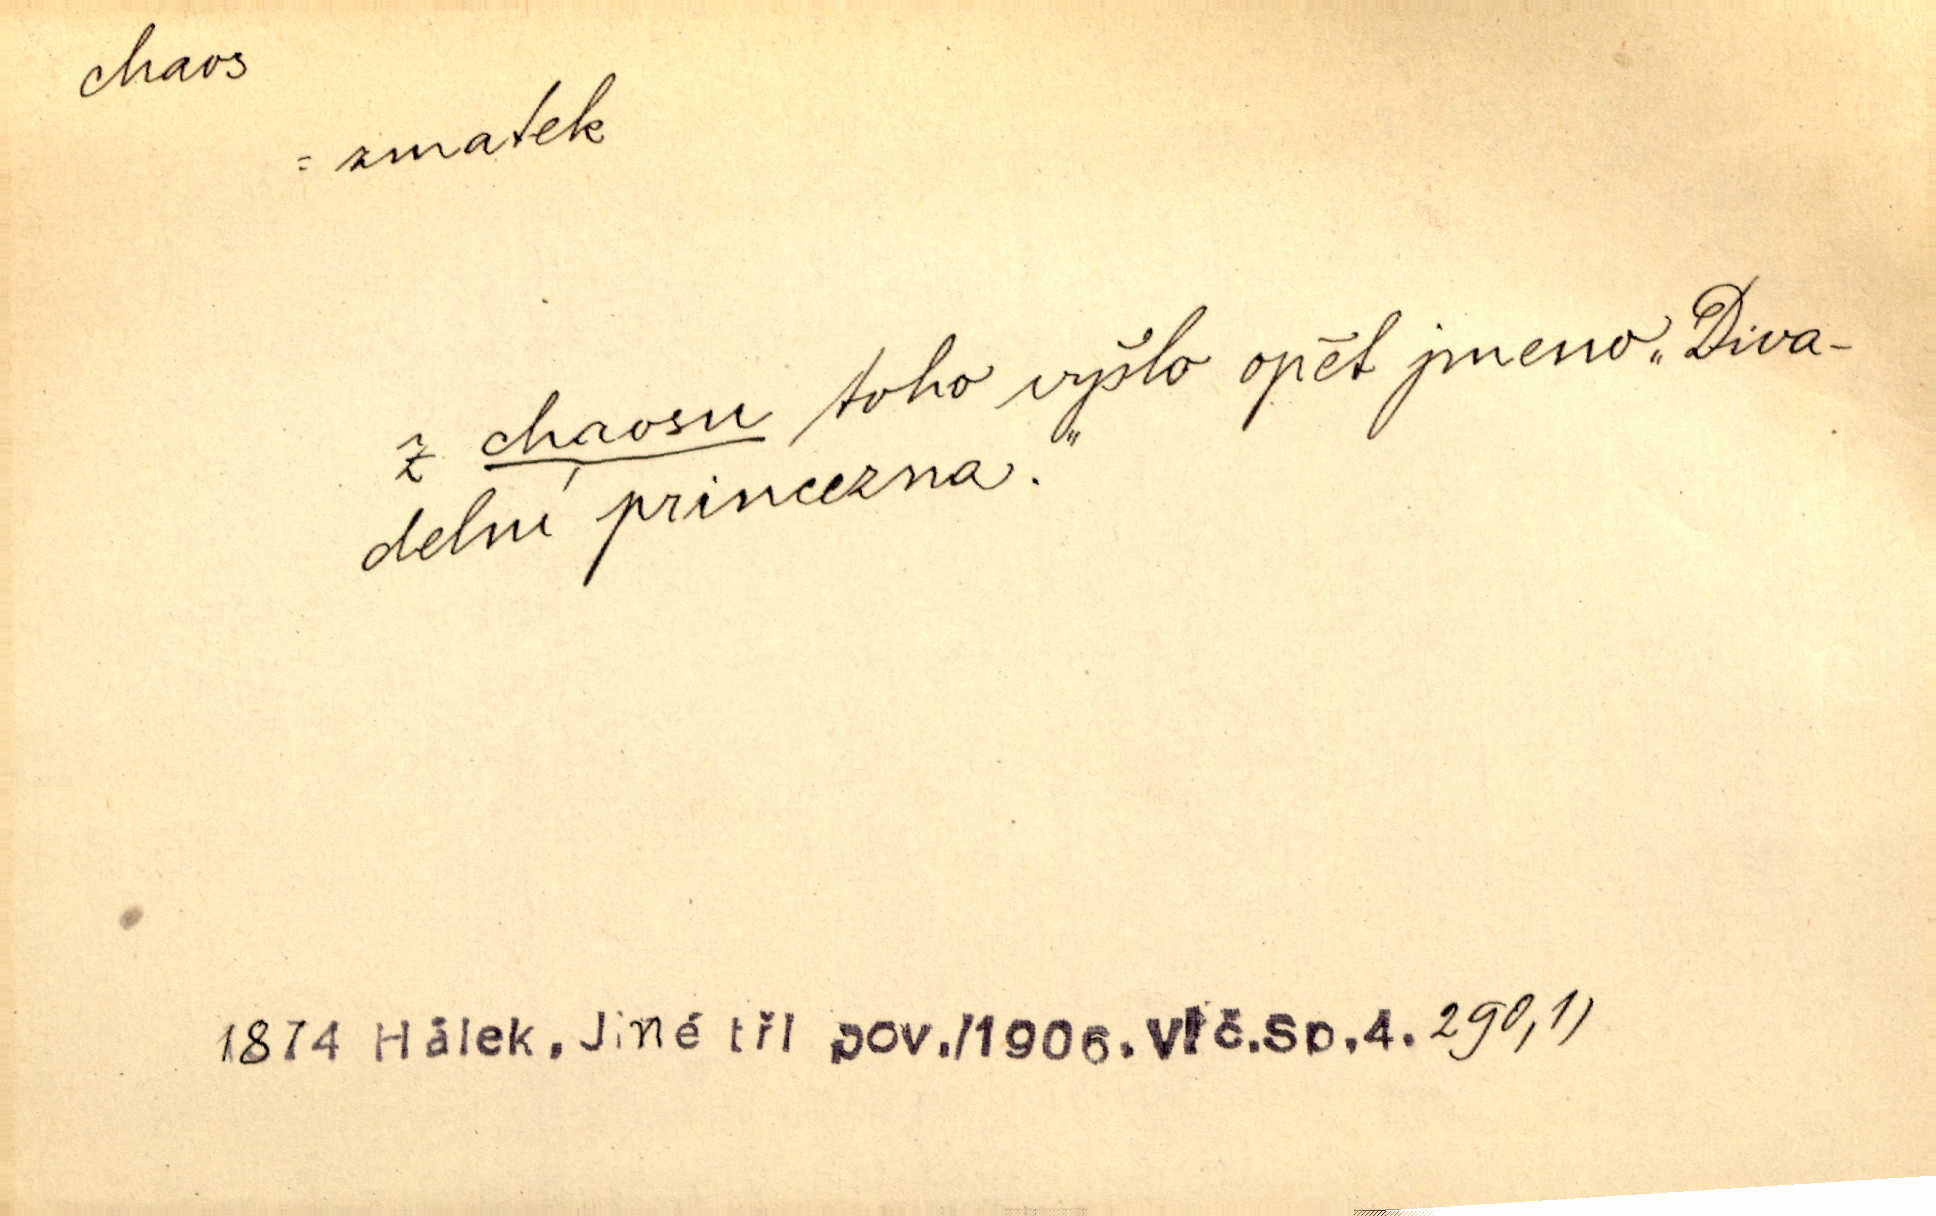 chaos
= zmatek
z chaosu toho vyšlo opět jmeno „Diva-
delní princezna."
1874 Hálek, Jiné tři pov./1906. Vlč.Sp.4. 290,1)